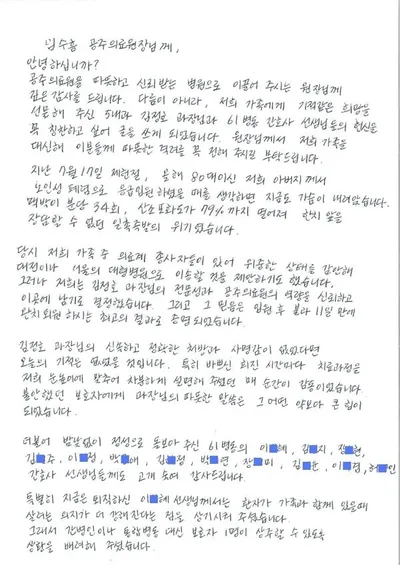 임수흠 공주의료원장님께,
안녕하십니까?
공주의료원을 따뜻하고 신뢰받는 병원으로 이끌어 주시는 원장님께
깊은 감사를 드립니다. 다름이 아니라, 저희 가족에게 기적같은 희망을
선물해 주신 5내과 김정호 과장님과 61병동 간호사 선생님들의 헌신을
꼭 칭찬하고 싶어 글을 쓰게 되었습니다. 원장님께서 저희 가족을
대신해 이분들께 따뜻한 격려를 꼭 전해 주시길 부탁드립니다.
지난 7월 17일 제헌절, 올해 80대이신 저희 아버지께서
노인성 폐렴으로 응급입원하셨을 때를 생각하면 지금도 가슴이 내려앉습니다.
맥박이 분당 34회, 산소포화도가 79%까지 떨어져 한치 앞을
장담할 수 없던 일촉즉발의 위기였습니다.
당시 저희 가족 중 의료계 종사자들이 있어 위중한 상태를 감안해
대전이나 서울의 대형병원으로 이송할 것을 제안하기도 했습니다.
그러나 저희는 김정호 과장님의 전문성과 공주의료원의 역량을 신뢰하고
이곳에 남기로 결정했습니다. 그리고 그 믿음은 입원 후 불과 11일 만에
완치 퇴원하시는 최고의 결과로 증명되었습니다.
김정호 과장님의 신속하고 정확한 처방과 사명감이 없었다면
오늘의 기적은 없었을 것입니다. 특히 바쁘신 회진 시간마다 치료과정을
저희 눈높이에 맞추어 차분하게 설명해 주셨던 매 순간이 감동이었습니다.
불안했던 보호자에게 과장님의 따뜻한 말씀은 그 어떤 약보다 큰 힘이
되었습니다.
더불어 밤낮없이 정성으로 돌보아 주신 61병동의 이 혜, 김 지, 장 현,
김 주, 이 정, 박 애, 김 정, 박 연, 장 미, 김 윤, 이 경, 허 인
간호사 선생님들께도 고개 숙여 감사드립니다.
특별히 지금은 퇴직하신 이 혜 선생님께서는 환자가 가족과 함께 있을때
살려는 의지가 더 강해진다는 점을 상기시켜 주셨습니다.
그래서 간병인이나 통합병동 대신 보호자 1명이 상주할 수 있도록
상황을 배려해 주셨습니다.